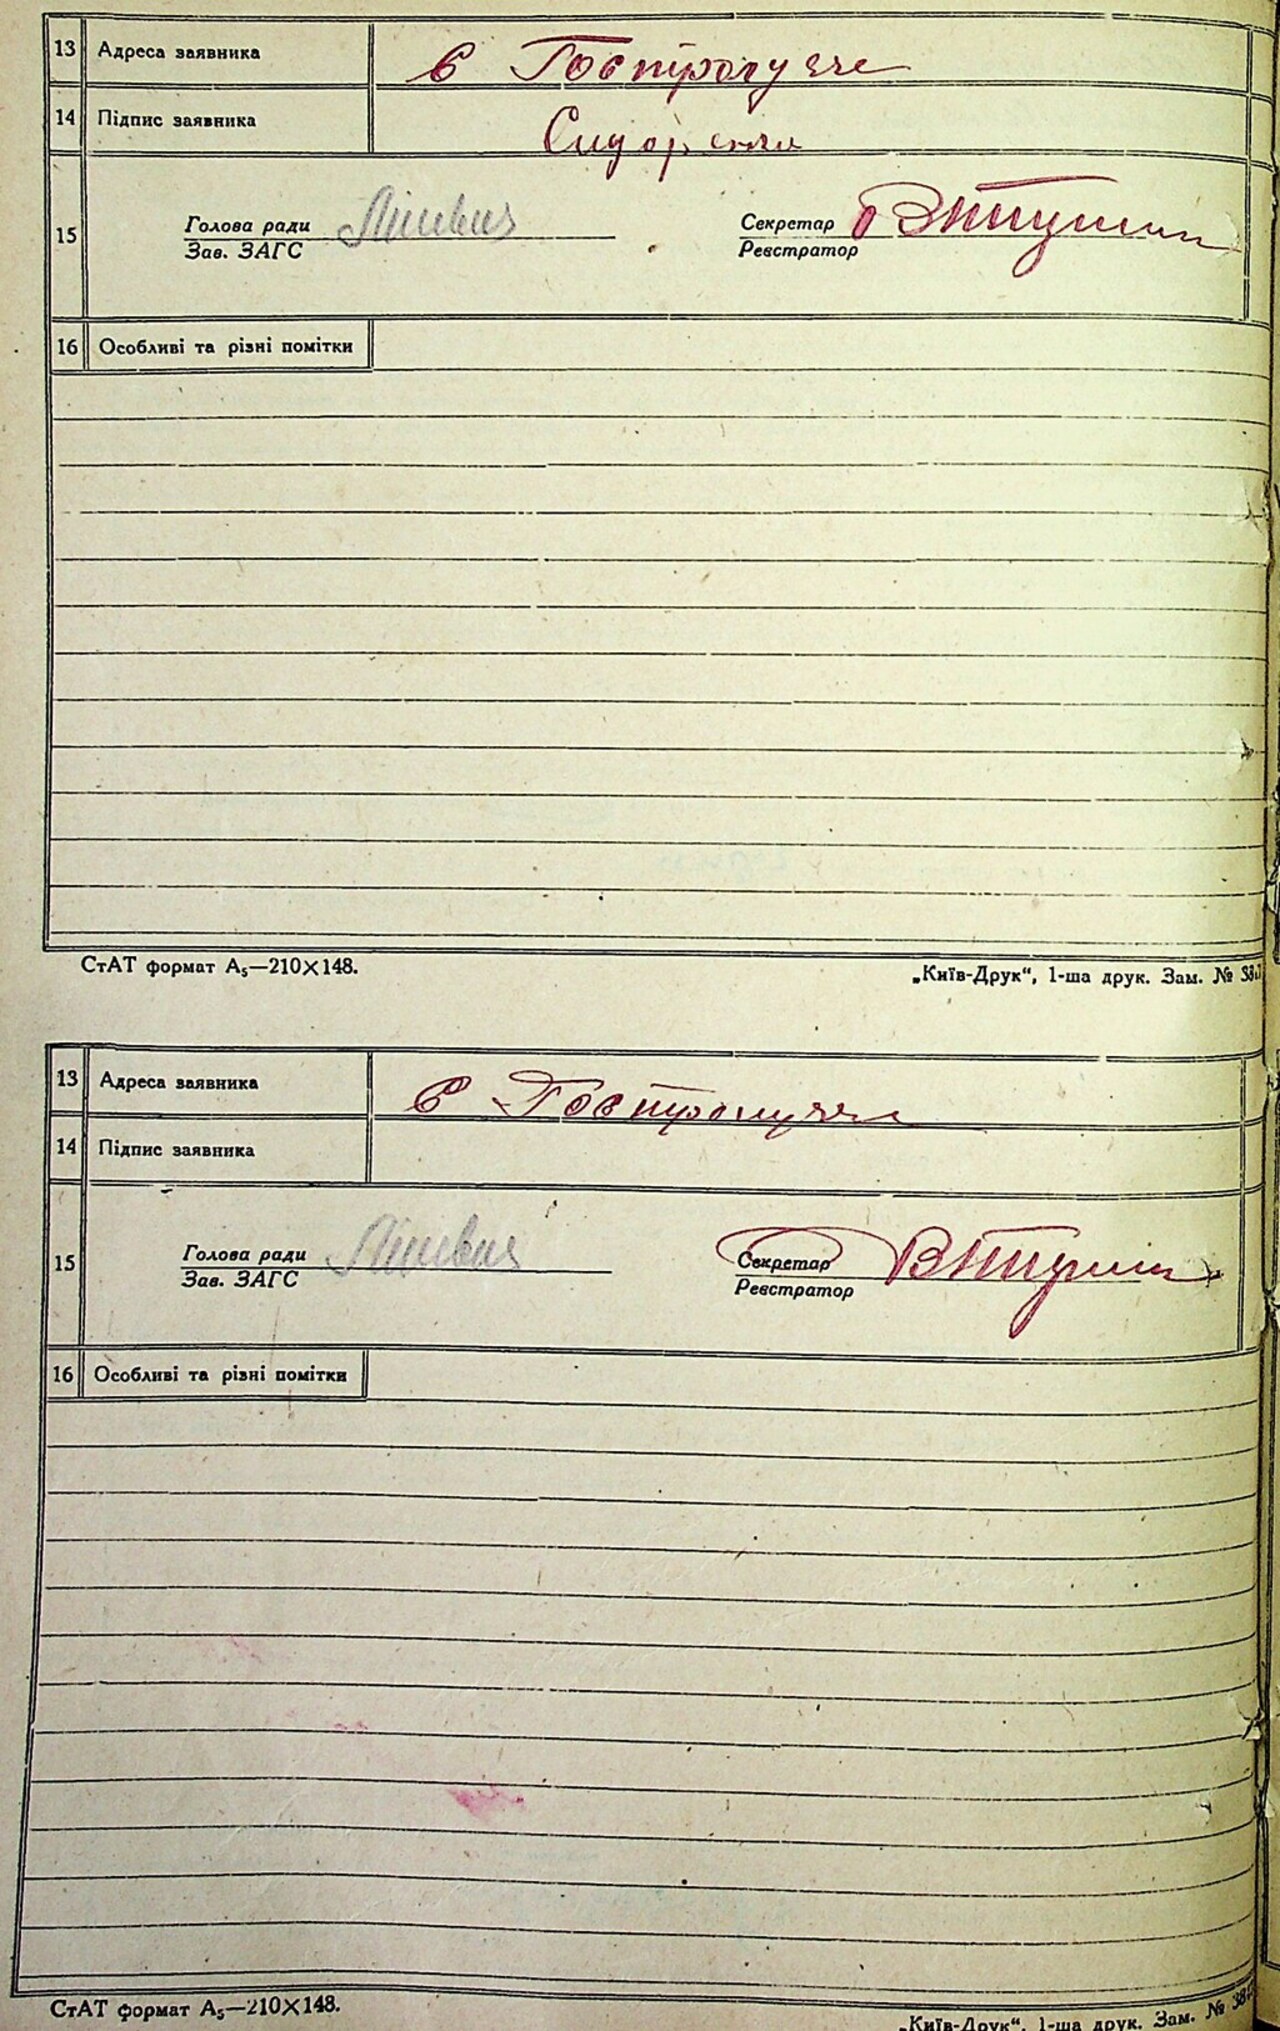 13 Адреса заявника с Гостролуччє
14 Підпис заявника
15 Голова ради Секретар
Зав. ЗАГС Реєстратор
16 Особливі та різні помітки
СтАТ формат А₅—210×148. „Київ-Друк“, 1-ша друк. Зам. №
13 Адреса заявника с Гостролуччє
14 Підпис заявника
15 Голова ради Секретар
Зав. ЗАГС Реєстратор
16 Особливі та різні помітки
СтАТ формат А₅—210×148. „Київ-Друк“, 1-ша друк. Зам. №